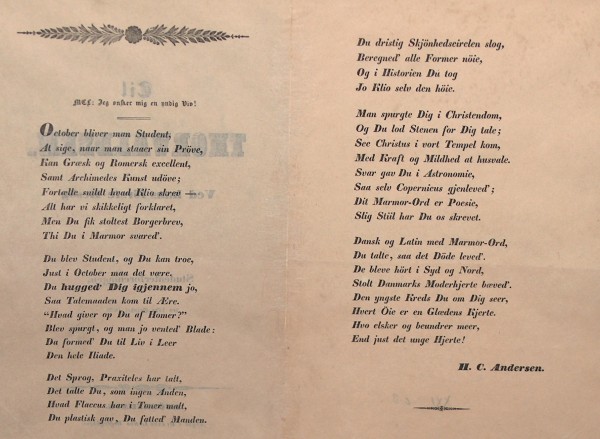 MEL: Jeg ønsker mig en yndig Viv!
October bliver man Student,
At sige, naar man staaer sin Pröve,
Kan Græsk og Romersk excellent,
Samt Archimedes Kunst udöve;
Fortælle mildt hvad Klio skrev —
Alt har vi skikkeligt forklaret,
Men Du fik stoltest Borgerbrev,
Thi Du i Marmor svared'.
Du blev Student, og Du kan troe,
Just i October maa det være.
Du hugged' Dig igjennem jo,
Saa Tatemaaden kom til Ære.
"Hvad giver op Du af Homer?"
Blev spurgt, og man jo vented' Blade:
Du formed' Du til Liv i Leer
Den hele Iliade.
Det Sprog, Praxiteles har talt,
Det talte Du, som ingen Anden,
Hvad Flaccus har i Toner malt,
Du plastisk gav, Du fatted' Manden.
Du dristig Skjönhedscirclen slog,
Beregned' alle Former nöie,
Og i Historien Du tog
Jo Klio selv den höie.
Man spurgte Dig i Christendom,
Og Du lod Stenen for Dig tale;
See Christus i vort Tempel kom,
Med Kraft og Mildhed at husvale.
Svar gav Du i Astronomie,
Saa selv Copernicus gjenleved';
Dit Marmor-Ord er Poesie,
Slig Stiil har Du os skrevet.
Dansk og Latin med Marmor-Ord,
Du talte, saa det Döde leved'.
De bleve hört i Syd og Nord,
Stolt Danmarks Moderhjerte bæved'.
Den yngste Kreds Du om Dig seer,
Hvert Öie er en Glædens Kjerte.
Hvo elsker og beundrer meer,
End just det unge Hjerte!
H. C. Andersen.